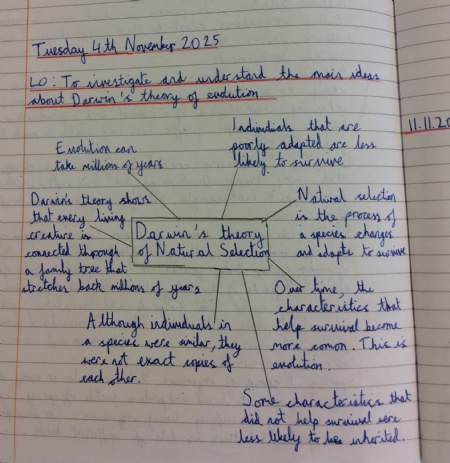 Tuesday 4th November 2025
LO: To investigate and understand the main ideas
about Darwin's theory of evolution
11.11.20
Individuals that are
poorly adapted are less
likely to survive
Evolution can
take millions of years
Natural selection
is the process of
a species changes
and adapts to survive
Darwin's theory shows
that every living
creature is
connected through
a family tree that
stretches back millions of years
Darwin's theory
of Natural Selection
Over time, the
characteristics that
help survival become
more common. This is
evolution.
Although individuals in
a species were similar, they
were not exact copies of
each other.
Some characteristics that
did not help survival were
less likely to be inherited.